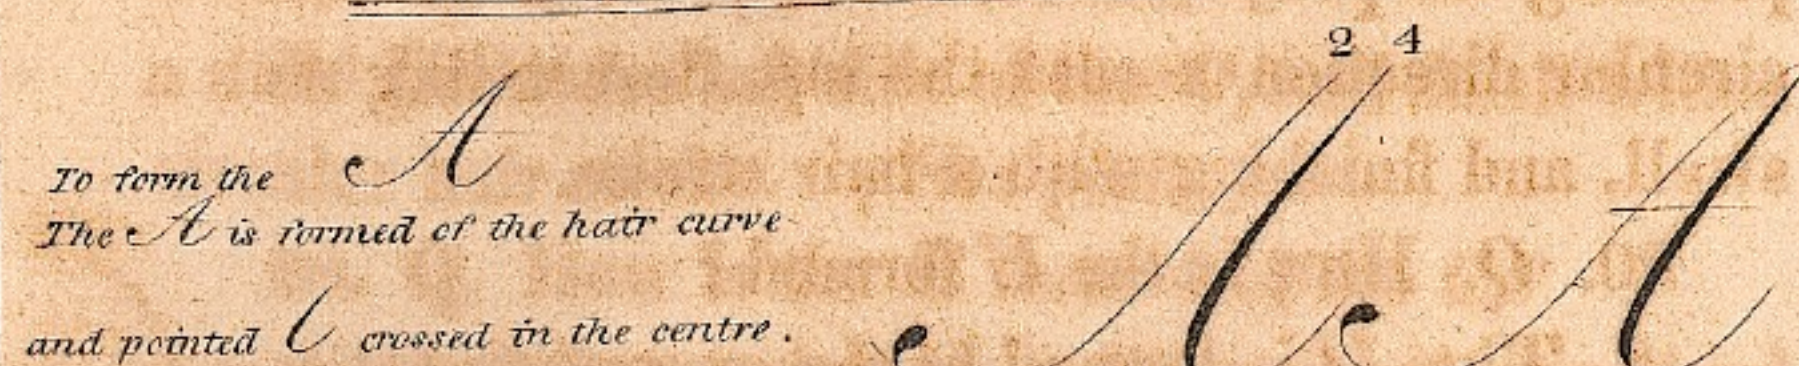 2 4
To form the A
The A is formed of the hair curve
and pointed l crossed in the centre.
A